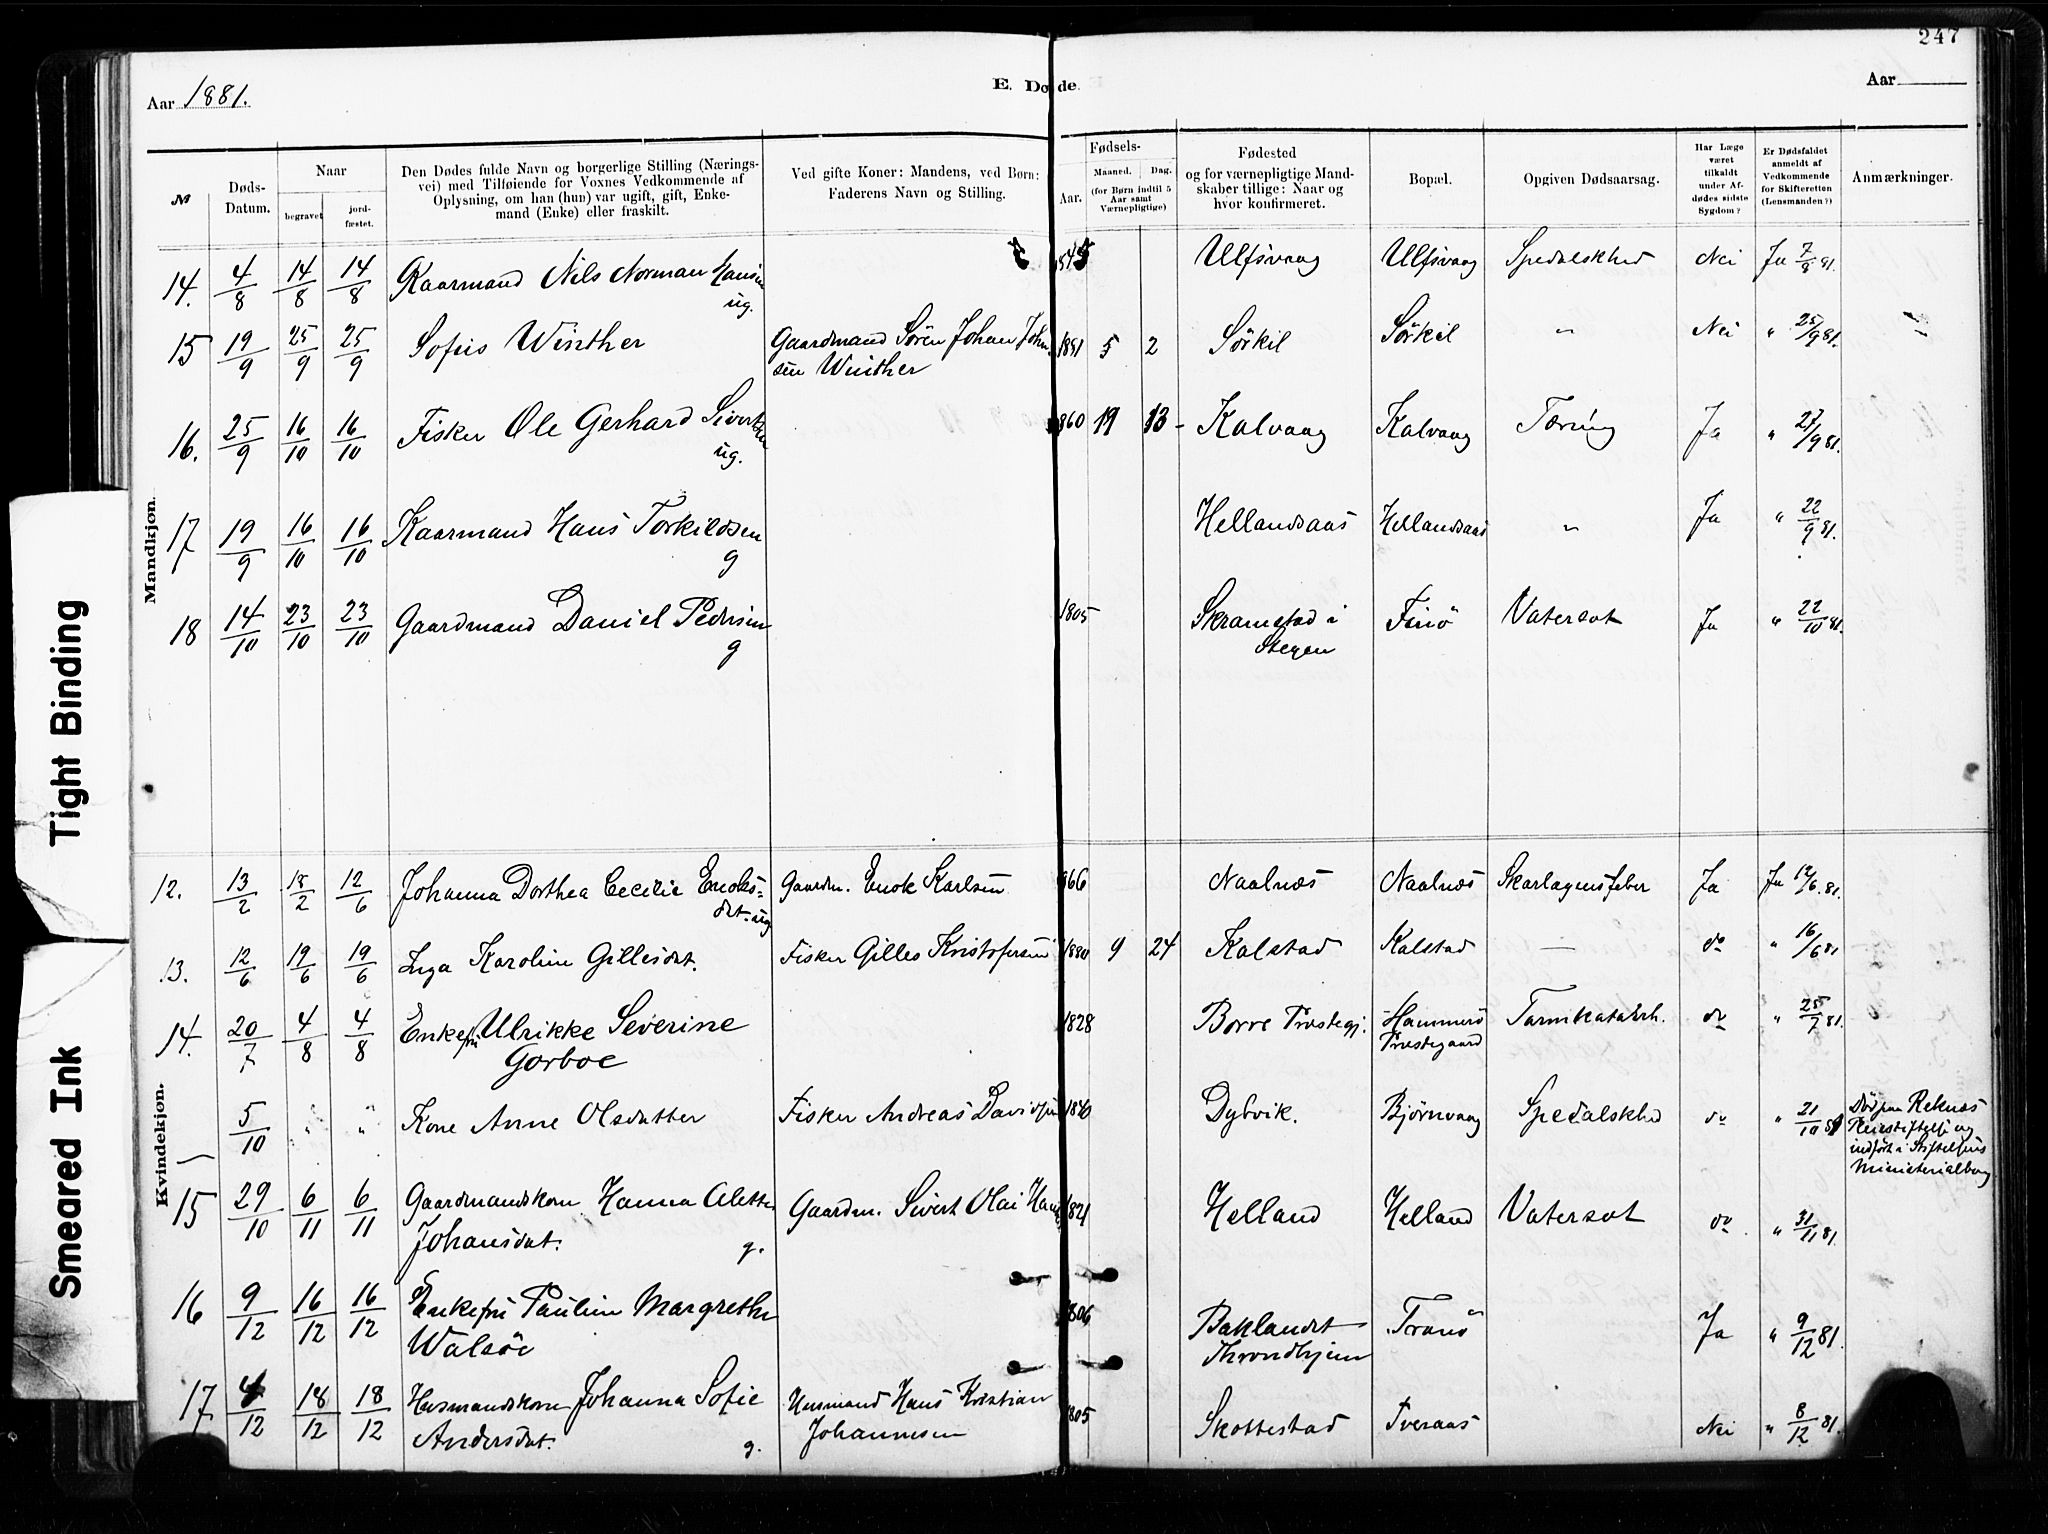 247
Aar 1881.
E. Døde.
Aar
№
Døds-
Datum.
Naar
begravet
jord-
fæstet.
Den Dødes fulde Navn og borgerlige Stilling (Nærings-
vei) med Tilføiende for Voxnes Vedkommende af
Oplysning, om han (hun) var ugift, gift, Enke-
mand (Enke) eller fraskilt.
Ved gifte Koner: Mandens, ved Børn:
Faderens Navn og Stilling.
Fødsels-
Aar.
Maaned. Dag.
(for Børn indtil 5
Aar samt
Værnepligtige)
Fødested
og for værnepligtige Mand-
skaber tillige: Naar og
hvor konfirmeret.
Bopæl.
Opgiven Dødsaarsag.
Har Læge
været
tilkaldt
under Af-
dødes sidste
Sygdom?
Er Dødsfaldet
anmeldt af
Vedkommende
for Skifteretten
(Lensmanden?)
Anmærkninger.
Mandkjøn.
14. 4/8 14/8 14/8 Kaarmand Nils Norman Hansen Ulfsvaag Ulfsvaag Spedalskhed Nei Ja 7/8 81.
ug.
15 19/9 25/9 25/9 Sofus Winther Gaardmand Sören Johan John- 1881 5 2 Sörkil Sörkil " Nei " 25/9 81. "
sen Winther
16. 25/9 16/10 16/10 Fisker Ole Gerhard Sivertsen 1860 11 13 - Kalvaag Kalvaag Tæring Ja " 27/9 81.
ug.
17 19/9 16/10 16/10 Kaarmand Hans Torkildsen Hellandsaas Hellandsaas " Ja " 22/9 81.
g
18 14/10 23/10 23/10 Gaardmand Daniel Pedersen 1805 Skramstad i Finö Vatersot Ja " 22/10 81.
g Stegen
Kvindekjøn.
12. 13/2 18/2 12/6 Johanna Dorthea Cecilie Enoks= Gaardm. Enok Karlsen 1866 Naalnæs Naalnæs Skarlagensfeber Ja Ja 12/6 81.
dat. ug
13. 12/6 19/6 19/6 Inga Karolin Gillesdat. Fisker Gilles Kristofersen 1880 9 24 Kalstad Kalstad — do " 16/6 81
14. 20/7 4/8 4/8 Enkefru Ulrikke Severine 1828 Borre Præstegj. Hammerö Tarmkatahrh. do " 25/7 81.
Gorboe Præstegaard
— 5/10 " " Kone Anne Olsdatter Fisker Andreas Davidsen 1840 Dybvik. Bjørnvaag Spedalskhed do " 21/10 81 Död paa Reknæs
Pleiestiftelse og
indført i Stiftelsens
Ministerialbog
15 29/10 6/11 6/11 Gaardmandskone Hanna Alette Gaardm. Sivert Olai Hans 1821 Helland Helland Vatersot do " 31/11 81.
Johansdat. g.
16 9/12 16/12 16/12 Enkefru Pauline Margrethe 1806 Baklandet Tranö Ja " 9/12 81
Walsöe Throndhjem
17 4/12 18/12 18/12 Husmandskone Johanna Sofie Husmand Hans Kristian 1805 Skottestad Tveraas Nei " 8/12 81.
Andersdat. g. Johannesen
Tight Binding
Smeared Ink